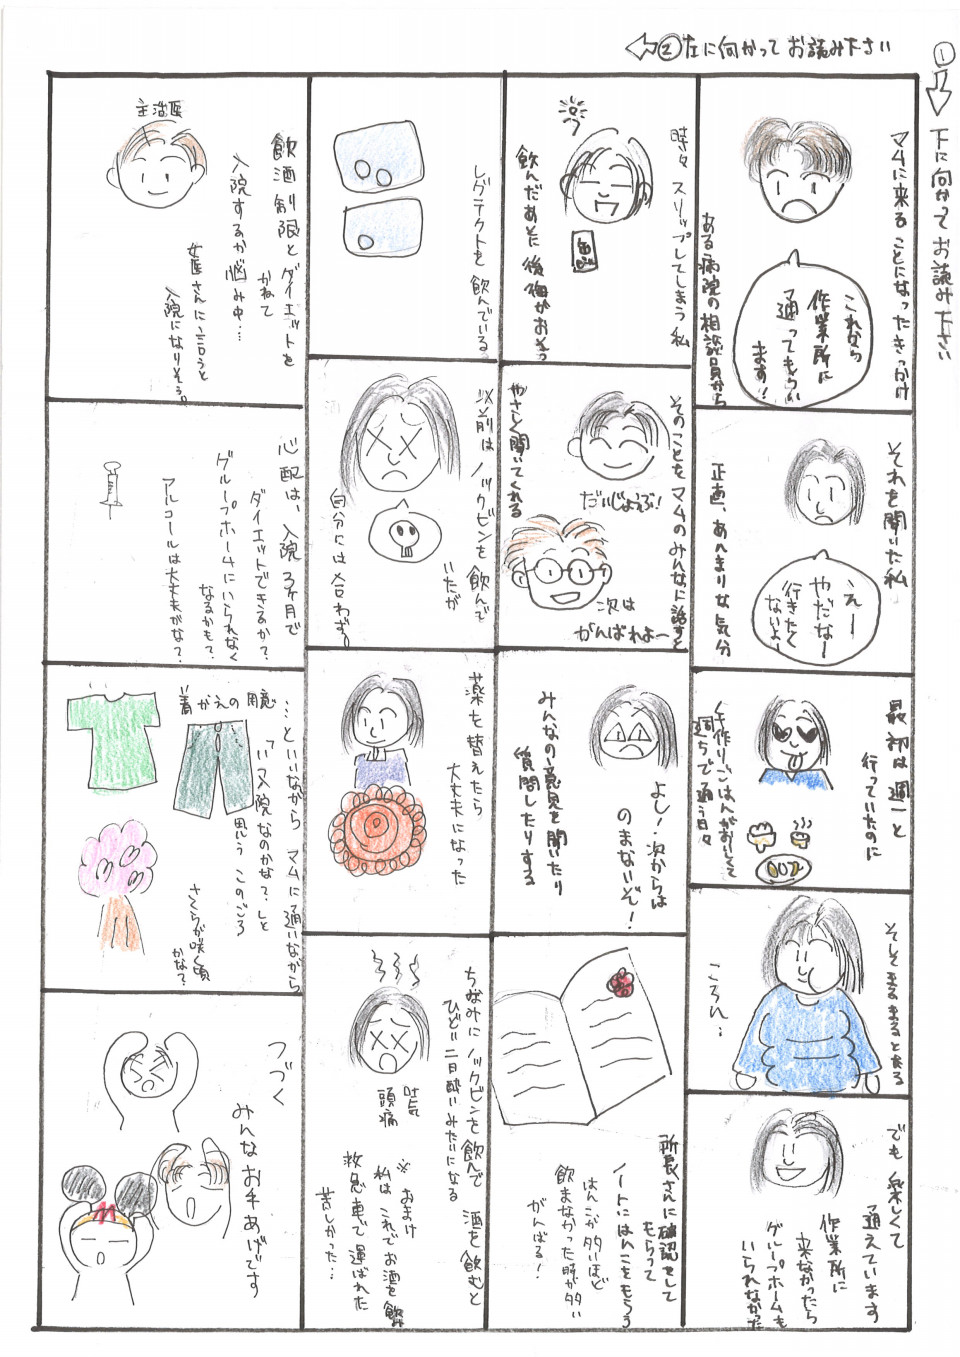 ①下に向かってお読み下さい
②左に向かってお読み下さい
マムに来ることになったきっかけ
ある病院の相談員から
これから
作業所に
通ってもらい
ます!
それを聞いた私
えー
やだなー
行きたく
ないよー
正直、あんまりな気分
最初は週一と
行っていたのに
手作りごはんがおいしくて
週5で通う日々
そしてまるまると太る
ころん…
でも楽しくて
通えています
作業所に
来なかったら
グループホームも
いられなかった
時々スリップしてしまう私
飲んだあとに後悔がおそう
そのことをマムのみんなに話すと
やさしく聞いてくれる
だいじょうぶ!
次は
がんばれよー
よし!次からは
のまないぞ!
みんなの意見を聞いたり
質問したりする
所長さんに確認をして
もらって
ノートにはんこをもらう
はんこが多いほど
飲まなかった日が多い
がんばる!
レグテクトを飲んでいる。
以前はノックビンを飲んで
いたが
自分には合わず。
薬を替えたら
大丈夫になった
ちなみにノックビンを飲んで酒を飲むと
ひどい二日酔いみたいになる
吐気
頭痛
※おまけ
私はこれでお酒を飲み
救急車で運ばれた
苦しかった…
主治医
飲酒制限とダイエットを
かねて
入院するか悩み中…
女医さんに言うと
入院になりそう。
心配は、入院3ヶ月で
ダイエットできるか?
グループホームにいられなく
なるかも?
アルコールは大丈夫かな?
…といいながらマムに通いながら
「入院なのかな?」と
思うこのごろ
着がえの用意
さくらが咲く頃
かな?
つづく
みんなお手あげです